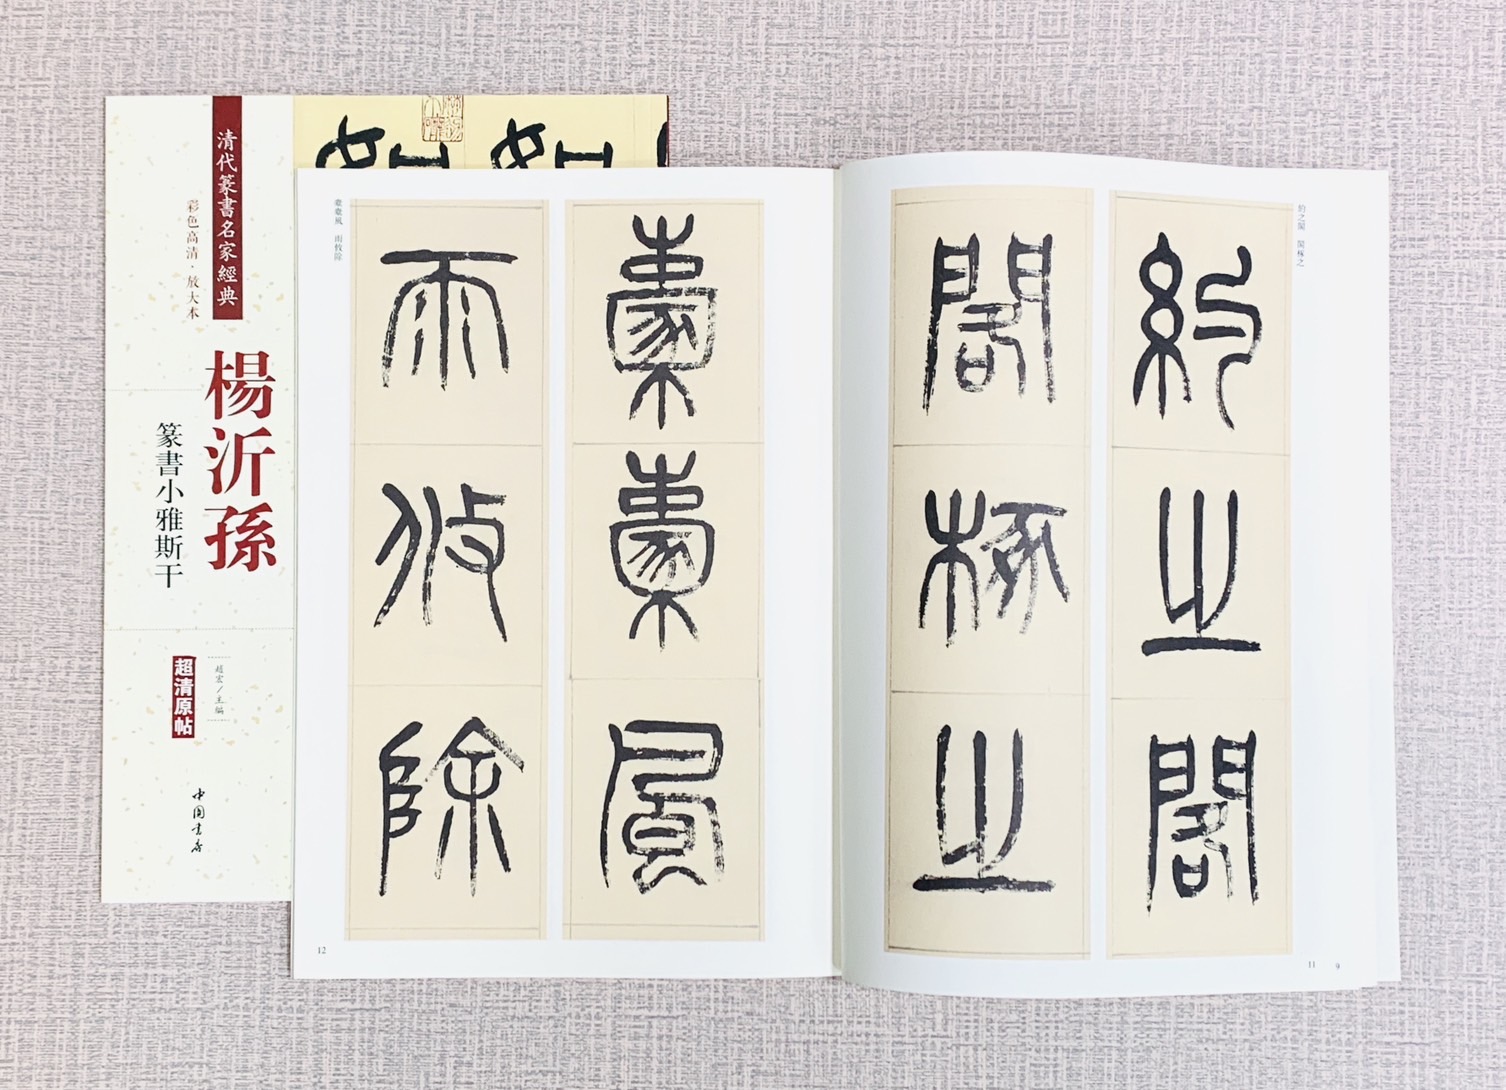 清代篆書名家經典
彩色高清·放大本
楊沂孫
篆書小雅斯干
趙宏/主編
超清原帖
中国书店
約之閣 閣椓之
約之閣
閣椓之
11
9
橐橐風 雨攸除
橐橐風
雨攸除
12